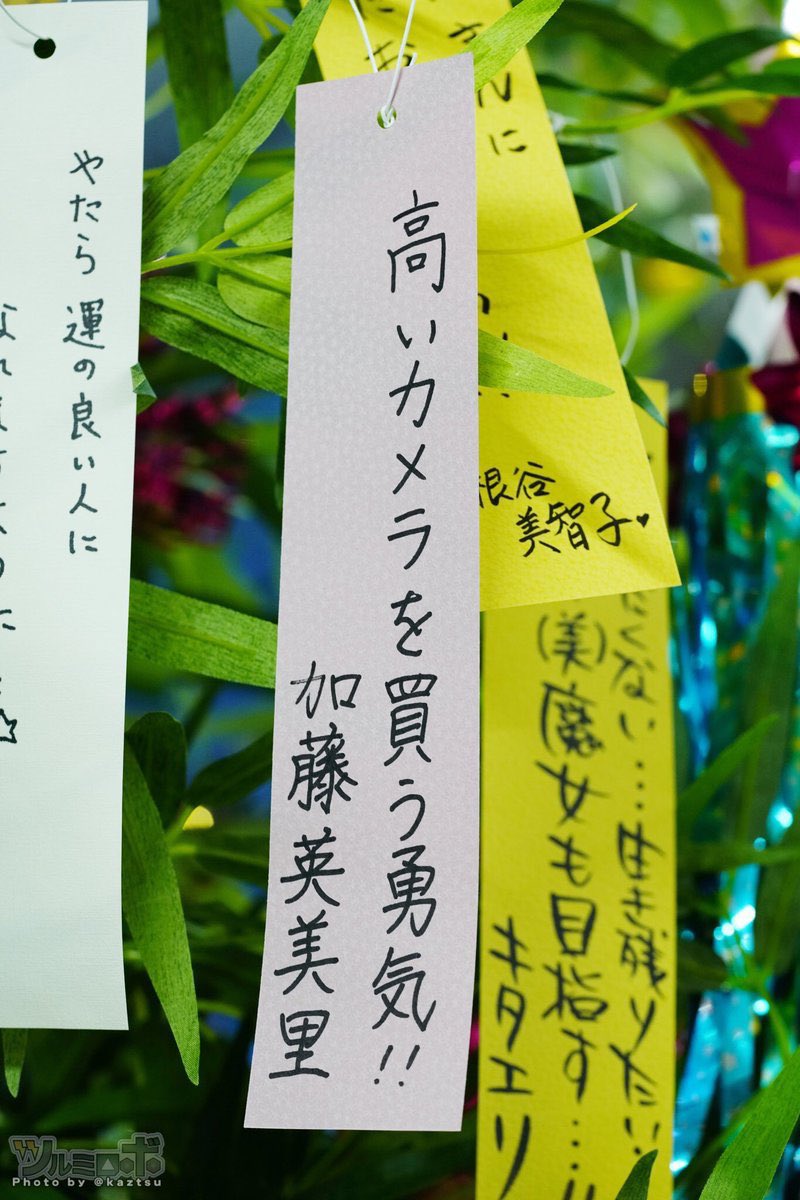 高いカメラを買う勇気!!
加藤英美里
やたら運の良い人に
んに
根谷
美智子♥
たくない…生き残りたい!
(美)魔女も目指す…!!
キタエリ
ツルミロボ
Photo by @kaztsu